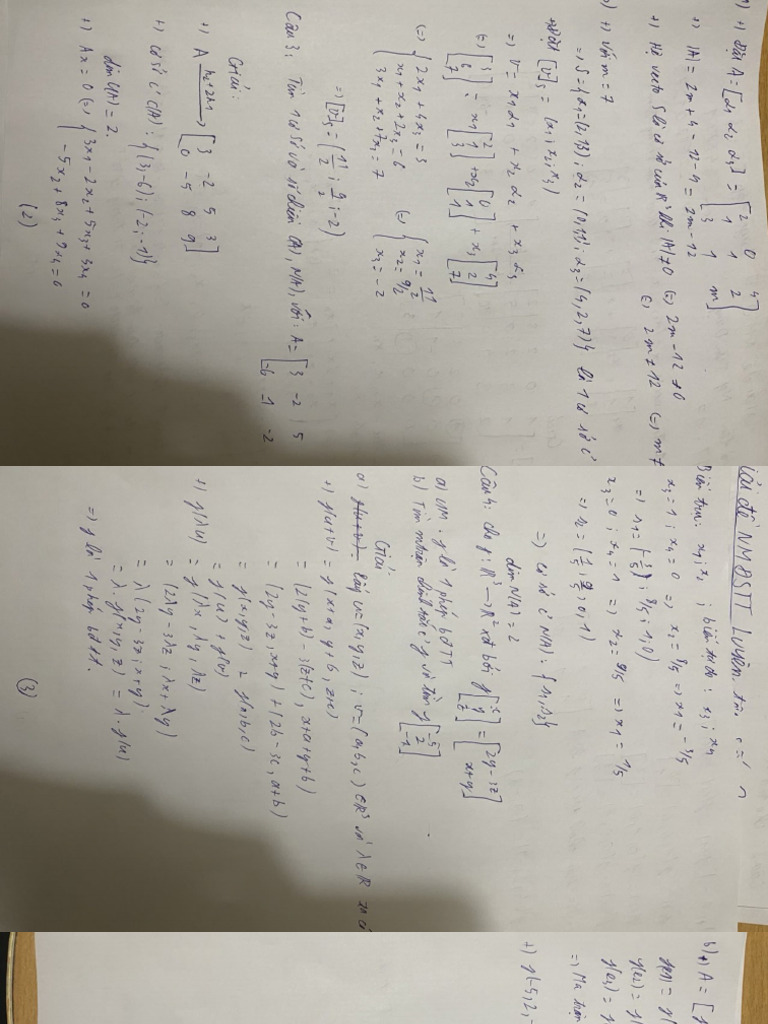 +) Đặt A = [α1 α2 α3] = [2 0 4; 1 1 2; 3 1 m]
+) |A| = 2m + 4 - 12 - 4 = 2m - 12
+) Hệ vectơ S là cơ sở của R³ |A| ≠ 0 (=) 2m - 12 ≠ 0
(=) 2m ≠ 12 (=) m ≠
+) với m = 7
=) S = {α1 = (2,1,3); α2 = (0,1,1); α3 = (4,2,7)} là 1 cơ sở
+) Đặt [v]S = (x1; x2; x3)
=) v = x1α1 + x2α2 + x3α3
(=) [3; 6; 7] = x1[2; 1; 3] + x2[0; 1; 1] + x3[4; 2; 7]
(=) { 2x1 + 4x3 = 3
x1 + x2 + 2x3 = 6
3x1 + x2 + 7x3 = 7
(=) { x1 = 11/2
x2 = 9/2
x3 = -2
=) [v]S = (11/2; 9/2; -2)
Câu 3: Tìm 1 cơ sở và số chiều C(A), N(A), với: A = [3 -2 5; -6 -1 -2
Giải:
+) A h2+2h1 → [3 -2 5 3; 0 -5 8 9]
+) Cơ sở C(A): {(3,-6); (-2,-1)}
dim C(A) = 2.
+) Ax = 0 (=) { 3x1 - 2x2 + 5x3 + 3x4 = 0
-5x2 + 8x3 + 9x4 = 0
(2)
Giải đề NMĐSTT Luyện
Biến trụ: x1; x2 ; biến tự do: x3; x4
x3 = 1; x4 = 0 =) x2 = 8/5 =) x1 = -3/5
=) s1 = (-3/5; 8/5; 1; 0)
x3 = 0; x4 = 1 =) x2 = 9/5 =) x1 = 1/5
=) s2 = (1/5; 9/5; 0; 1)
=) cơ sở N(A): {s1, s2}
dim N(A) = 2
Câu 4: cho f: R³ → R² xđ bởi f[x; y; z] = [2y - 3z; x + y]
a) CM: f là 1 phép bđTT
b) Tìm ma trận chính tắc f và tìm f[-5; 2; -1]
Giải:
a) Lấy u = (x, y, z); v = (a, b, c) ∈ R³ và λ ∈ R
+) f(u+v) = f(x+a, y+b, z+c)
= (2(y+b) - 3(z+c), x+a+y+b)
= (2y - 3z, x+y) + (2b - 3c, a+b)
= f(x,y,z) + f(a,b,c)
= f(u) + f(v)
+) f(λu) = f(λx, λy, λz)
= (2λy - 3λz; λx + λy)
= λ(2y - 3z; x+y)
= λ.f(x,y,z) = λ.f(u)
=) f là 1 phép bđtt.
(3)
b) +) A = [
f(e1) = f(
f(e2) = f(
f(e3) = f(
=) Ma trận
+) f(-5, 2, -